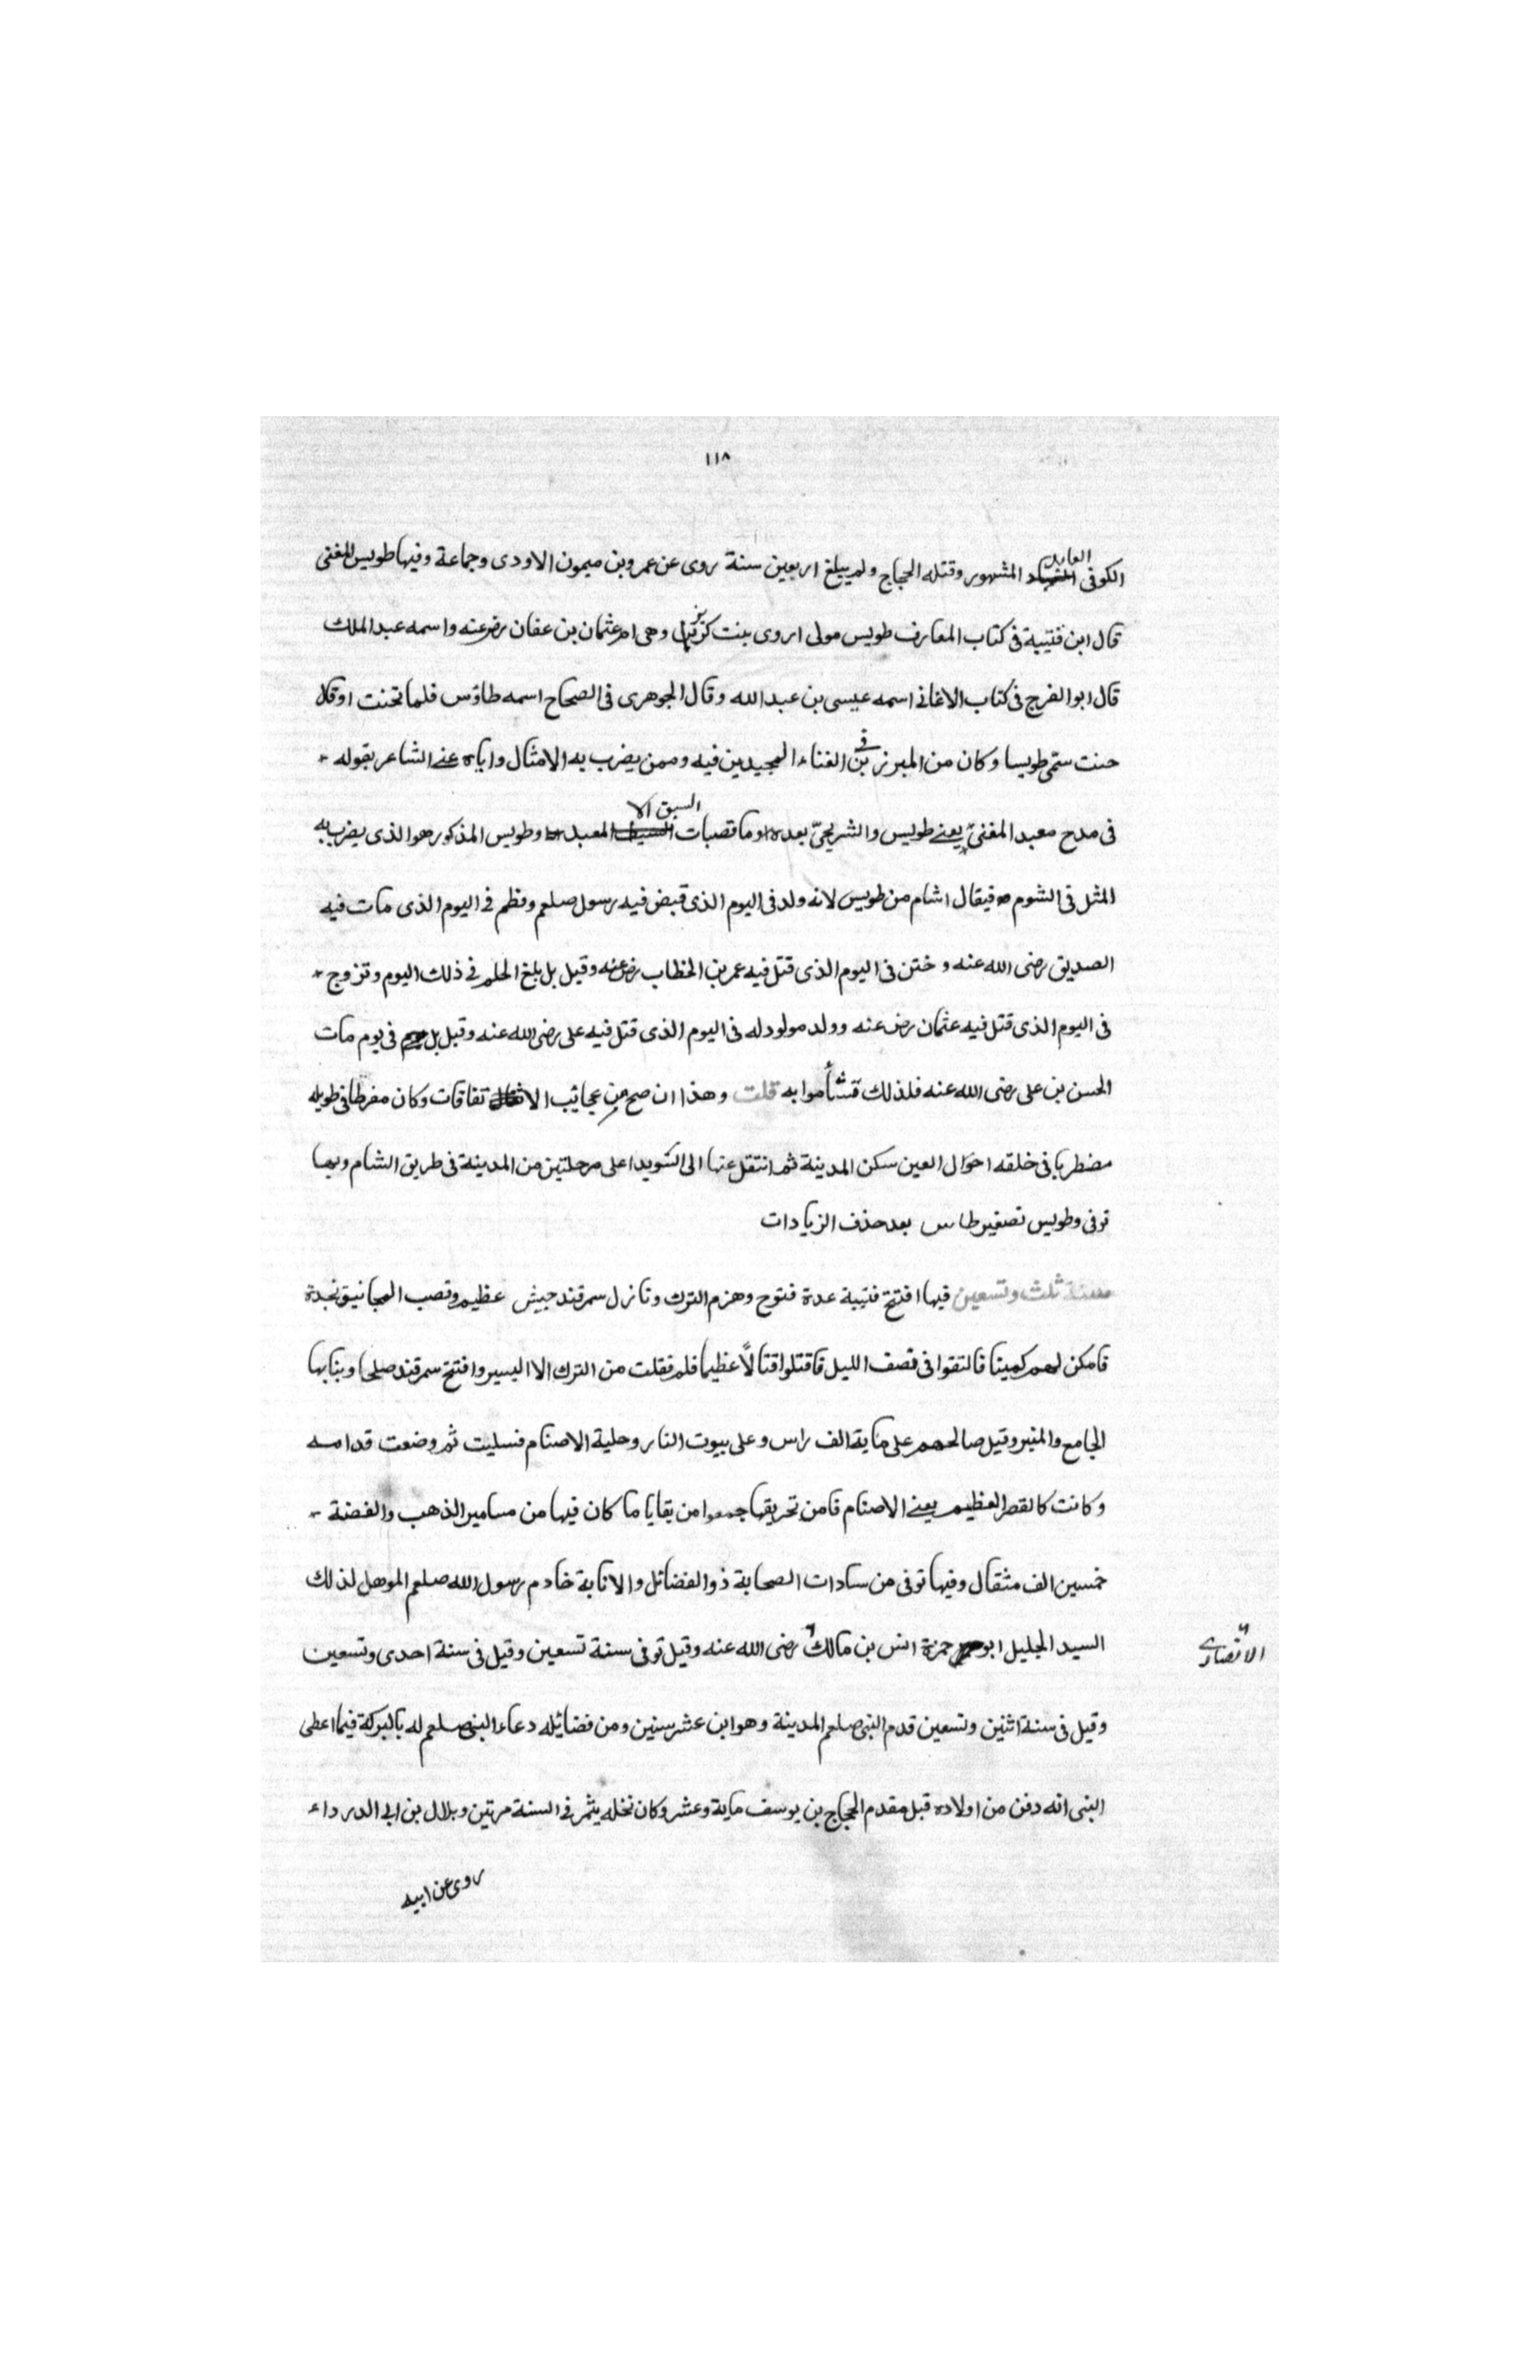 ١١٨
العابد
الكوفى المشهور وقتله الحجاج ولم يبلغ اربعين سنة روى عن عمرو بن ميمون الاودى وجماعة وفيها طويس المغنى
قال ابن قتيبة فى كتاب المعارف طويس مولى اروى بنت كريز وهى ام عثمان بن عفان رضر عنه واسمه عبد الملك
قال ابو الفرج فى كتاب الاغانى اسمه عيسى بن عبد الله وقال الجوهرى فى الصحاح اسمه طاؤس فلما تخنت اوقال
خنت سمّى طويسا وكان من المبرزين فى الغناء المجيدين فيه وممن يضرب به الامثال واياه عنى الشاعر بقوله
السبق الا
فى مدح معبد المغنىّ يعنى طويس والشريحىّ بعده وما قصبات المعبد وطويس المذكور هوا الذى يضرب به
المثل فى الشوم فيقال اشام من طويس لانه ولد فى اليوم الذى قبض فيه رسول صلعم وفطم فى اليوم الذى مات فيه
الصديق رضى الله عنه وختن فى اليوم الذى قتل فيه عمر بن الخطاب رضر عنه وقيل بل بلغ الحلم فى ذلك اليوم وتزوج
فى اليوم الذى قتل فيه عثمان رضر عنه وولد مولود له فى اليوم الذى قتل فيه على رضى الله عنه وقيل بل فى يوم مات
الحسن بن على رضى الله عنه فلذلك تشأموا به قلت وهذا ان صح من عجائب الا تفاقات وكان مفرطا فى طوله
مضطربا فى خلقه احوال العين سكن المدينة ثم انتقل عنها الى السويدا على مرحلتين من المدينة فى طريق الشام وبها
توفى وطويس تصغير طاس بعد حذف الزيادات
سنة ثلث وتسعين فيها افتتح قتيبة عدة فتوح وهزم الترك ونازل سمرقند جيش عظيم ونصب المجانيق نجدة
فامكن لهم كمينا فالتقوا فى نصف الليل فاقتتلوا قتالاً عظيما فلم يفلت من الترك الا اليسير وافتتح سمرقند صلحا وبنا بها
الجامع والمنبر وقيل صالحهم على ماية الف راس وعلى بيوت النار وحلية الاصنام فسليت ثم وضعت قدامه
وكانت كالقصر العظيم يعنى الاصنام فامن تحريقها جمعوا من بقايا ما كان فيها من مسامير الذهب والفضة
خمسين الف مثقال وفيها توفى من سادات الصحابة ذو الفضائل والانابة خادم رسول الله صلعم الموهل لذلك
السيد الجليل ابو حمزة انس بن مالك رضى الله عنه وقيل توفى سنة تسعين وقيل فى سنة احدى وتسعين
الانصارى
وقيل فى سنة اثنين وتسعين قدم النبى صلعم المدينة وهو ابن عشر سنين ومن فضائله دعاء النبى صلعم له بالبركة فيما اعطى
النبى انه دفن من اولاده قبل مقدم الحجاج بن يوسف ماية وعشر وكان نخله يثمر فى السنة مرتين وبلال بن ابى الدرداء
روى عن ابيه